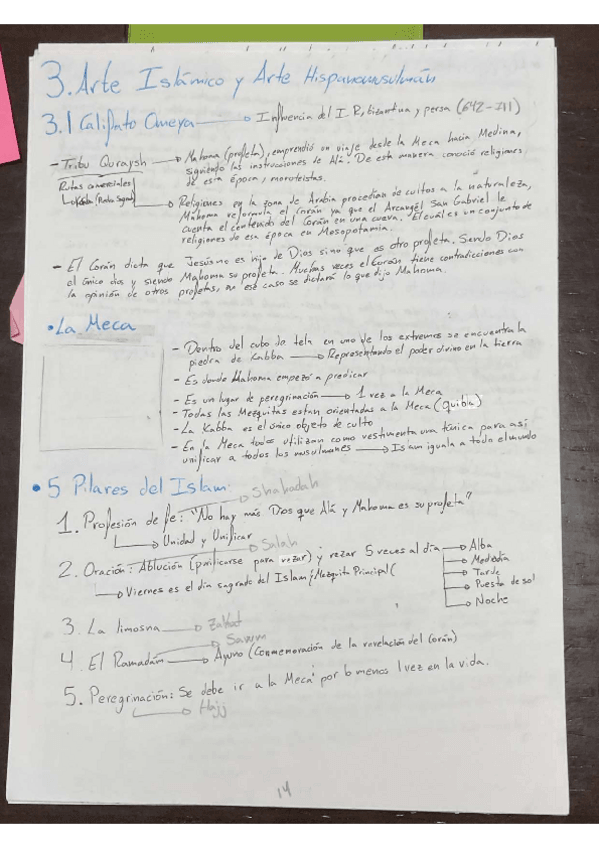 3. Arte Islámico y Arte Hispanomusulmán
3.1 Califato Omeya → Influencia del I. R, bizantina y persa (642-711)
- Tribu Quraysh → Mahoma (profeta), emprendió un viaje desde la Meca hacia Medina,
siguiendo las instrucciones de Alá. De esta manera conoció religiones
de esta época, monoteistas.
Rutas comerciales
Kabba (Piedra Sagrada)
→ Religiones en la zona de Arabia procedian de cultos a la naturaleza,
Mahoma reformula el Corán ya que el Arcangel San Gabriel le
cuenta el contenido del Corán en una cueva. El cual es un conjunto de
religiones de esa época en Mesopotamia.
- El Corán dicta que Jesús no es hijo de Dios sino que es otro profeta. Siendo Dios
el único dios y siendo Mahoma su profeta. Muchas veces el Corán tiene contradicciones con
la opinión de otros profetas, en ese caso se dictará lo que dijo Mahoma.
• La Meca
- Dentro del cubo de tela en uno de los extremos se encuentra la
piedra de Kabba → Representando el poder divino en la tierra
- Es donde Mahoma empezó a predicar
- Es un lugar de peregrinación → 1 vez a la Meca
- Todas las Mezquitas estan orientadas a la Meca (quibla)
- La Kabba es el único objeto de culto
- En la Meca todos utilizan como vestimenta una túnica para así
unificar a todos los musulmanes → Islam iguala a todo el mundo
• 5 Pilares del Islam:
Shahadah
1. Profesión de fe: "No hay más Dios que Alá y Mahoma es su profeta"
→ Unidad y Unificar
Salah
2. Oración: Ablución (purificarse para rezar) y rezar 5 veces al día → Alba
→ Mediodía
→ Tarde
→ Puesta de sol
→ Noche
→ Viernes es el día sagrado del Islam / Mezquita Principal (
3. La limosna → Zakat
Sawm
4. El Ramadám → Ayuno (Conmemoración de la revelación del Corán)
5. Peregrinación: Se debe ir a la Meca por lo menos 1 vez en la vida.
→ Hajj
14